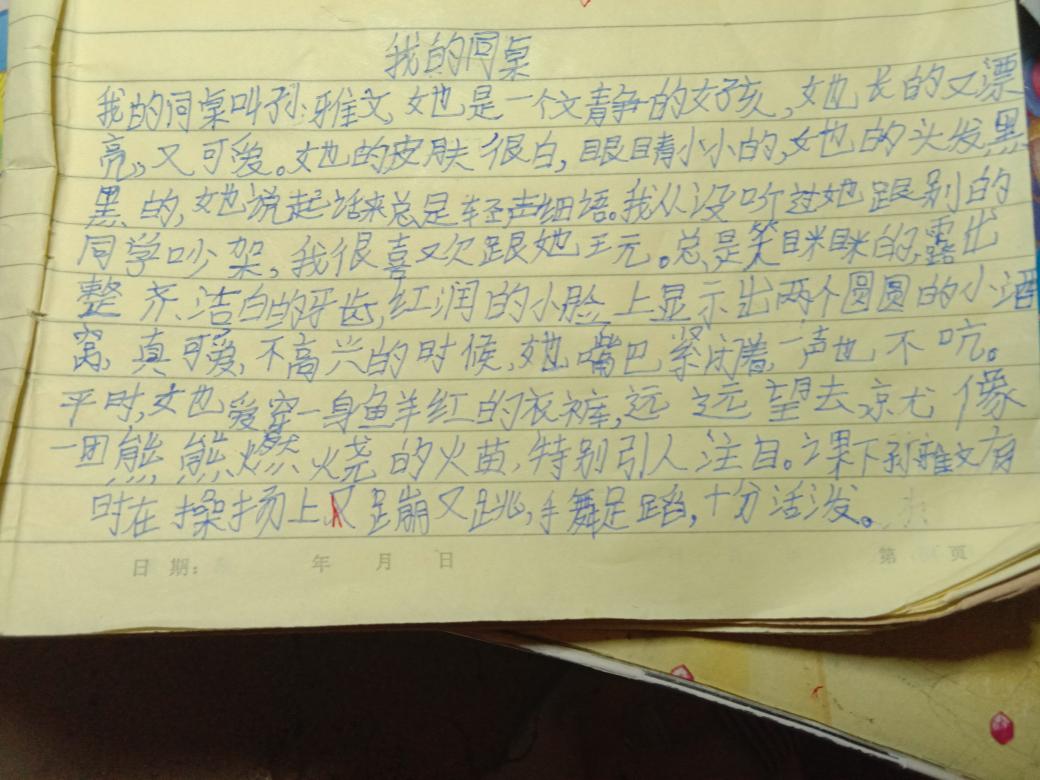 我的同桌
我的同桌叫孙雅文,她也是一个文静的女孩,她长的又漂
亮,又可爱。她的皮肤很白,眼睛小小的,她的头发黑
黑的,她说起话来总是轻声细语。我从没听过她跟别的
同学吵架,我很喜欢跟她王元。总是笑眯眯的,露出
整齐、洁白的牙齿,红润的小脸上显示出两个圆圆的小酒
窝,真可爱,不高兴的时候,她嘴巴紧闭着,一声也不吭。
平时,她爱穿一身鱼羊红的衣裤,远远望去,京尤像
一团熊熊燃烧的火苗,特别引人注目。课下孙雅文有
时在操扬上又蹦又跳,手舞足蹈,十分活泼。
日 期: 年 月 日 第 页